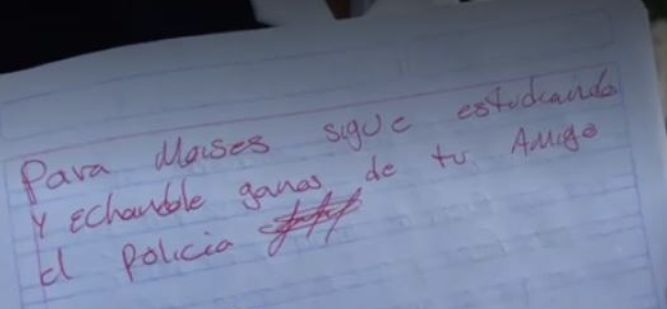 Para Moises sigue estudiando
y echandole ganas de tu Amigo
el policia